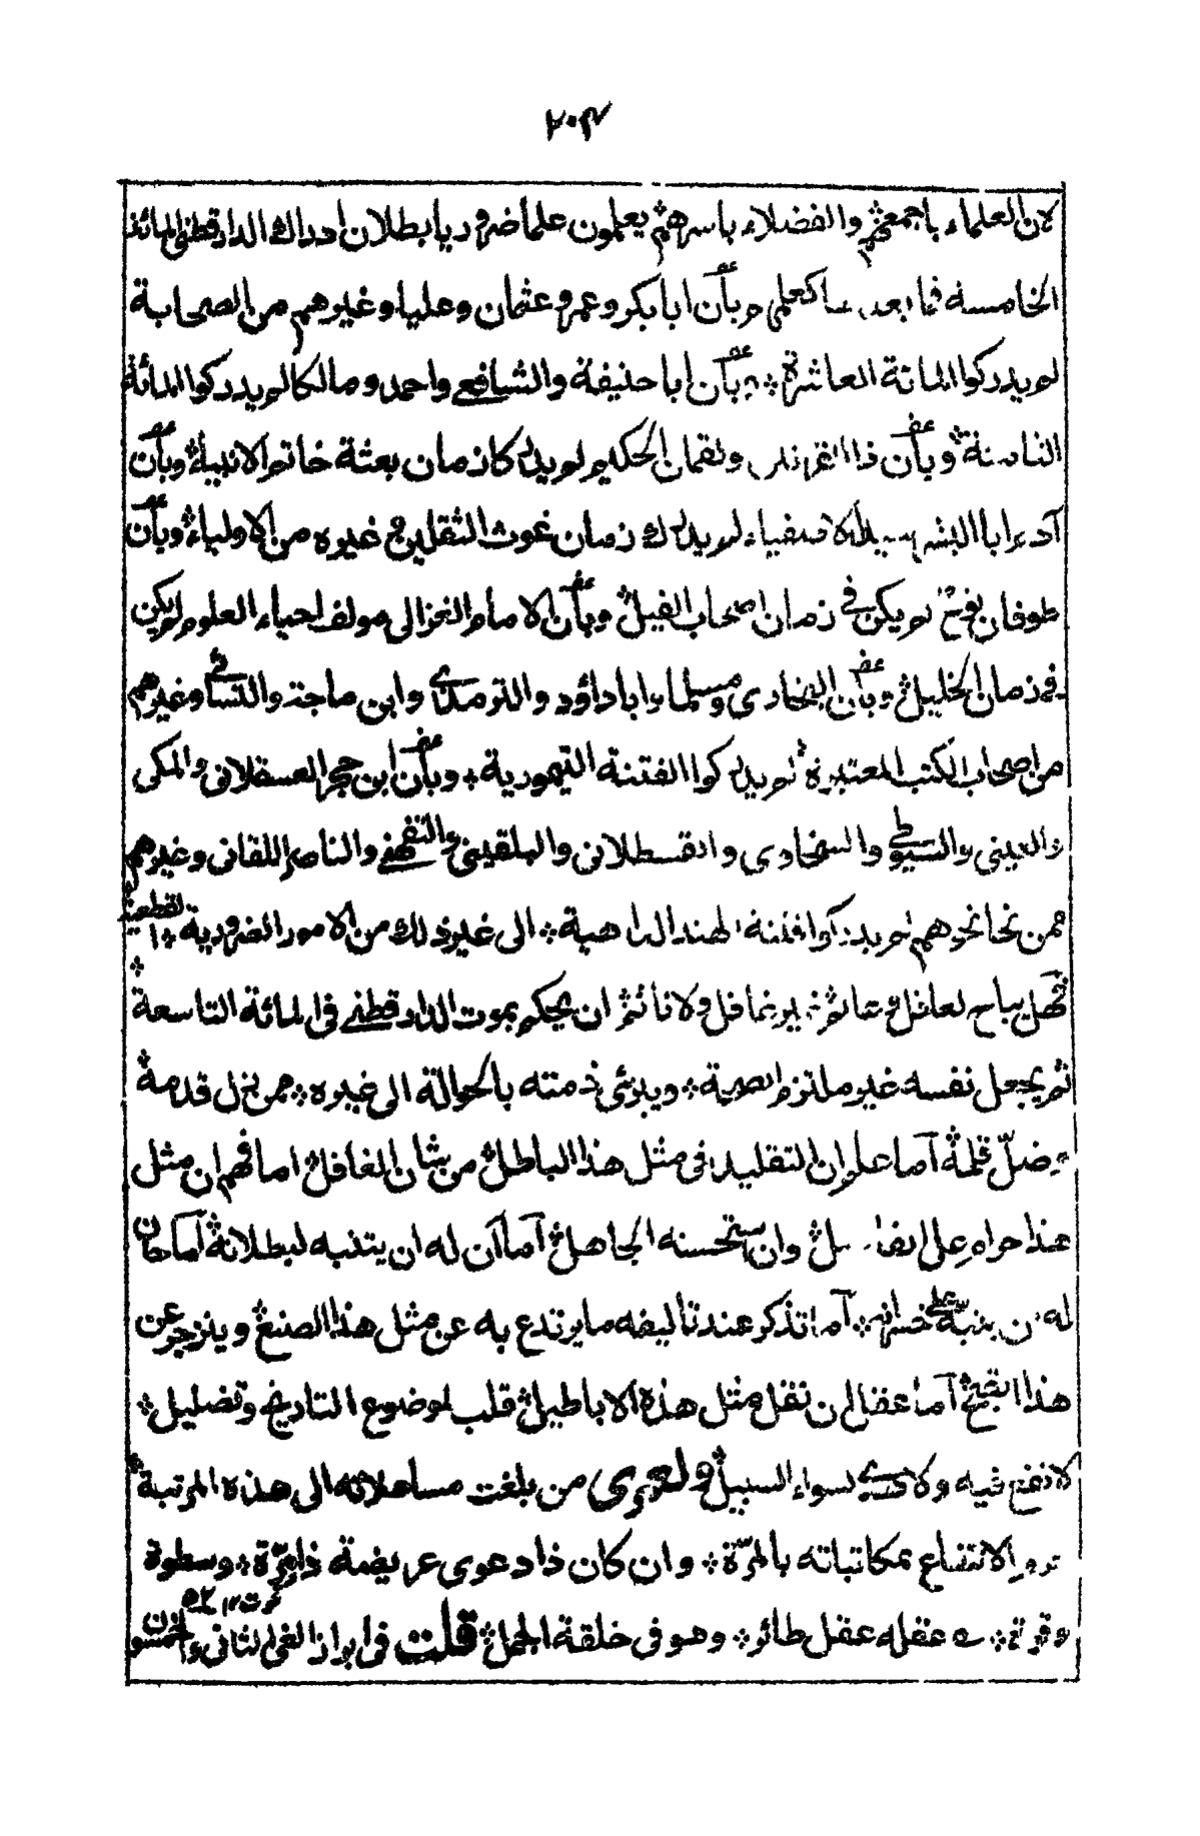 ٢٠٣
لان العلماء باجمعهم والفضلاء باسرهم يعلمون علما ضروريا ببطلان ادراك الدارقطني المائة
الخامسة فما بعدها كعلمهم بأن ابا بكر وعمر وعثمان وعليا وغيرهم من الصحابة
لم يدركوا المائة العاشرة وبأن ابا حنيفة والشافعي واحمد ومالكا لم يدركوا المائة
الثامنة وبأن ذا القرنين ولقمان الحكيم لم يدركا زمان بعثة خاتم الانبياء وبأن
آدم ابا البشر لم يدرك زمان غوث الثقلين وغيره من الاولياء وبأن
طوفان نوح لم يكن في زمان اصحاب الفيل وبأن الامام الغزالي مولف احياء العلوم لم يكن
في زمان الخليل وبأن البخاري ومسلما وابا داؤد والترمذي وابن ماجة والنسائي وغيرهم
من اصحاب الكتب المعتبرة لم يدركوا الفتنة التيمورية وبأن ابن حجر العسقلاني والمكي
والعيني والسيوطي والسخاوي والقسطلاني والبلقيني والتفهني والناصر اللقاني وغيرهم
ممن نحا نحوهم لم يدركوا فتنة الهند الداهية الى غير ذلك من الامور الضرورية القطعية
فهل يباح لعاقل ان يحكم بموت الدارقطني في المائة التاسعة
ثم يجعل نفسه غير ملتزم الصحة ويبرئ ذمته بالحوالة الى غيره ممن نزل قدمه
وضل قلمه آما علم ان التقليد في مثل هذا الباطل من شان الغافل اما فهم ان مثل
هذا حرام على الفاضل وان استحسنه الجاهل آما آن له ان يتنبه لبطلانه آما حان
له ان يتنبه على خسرانه آما تذكر عند تاليفه ما يرتدع به عن مثل هذا الصنيع وينزجر عن
هذا القبيح آما عقل ان نقل مثل هذه الاباطيل قلب لموضوع التاريخ وتضليل
لا نفع فيه ولا هدي لسواء السبيل ولعمري من بلغت مساهلاته الى هذه المرتبة
حرم الانتفاع بمكاتباته بالمرة وان كان ذا دعوى عريضة وسطوة
عقله عقل طائر وهو في خلقة الجمل قلت في ابراز الغي الثاني والخمسون